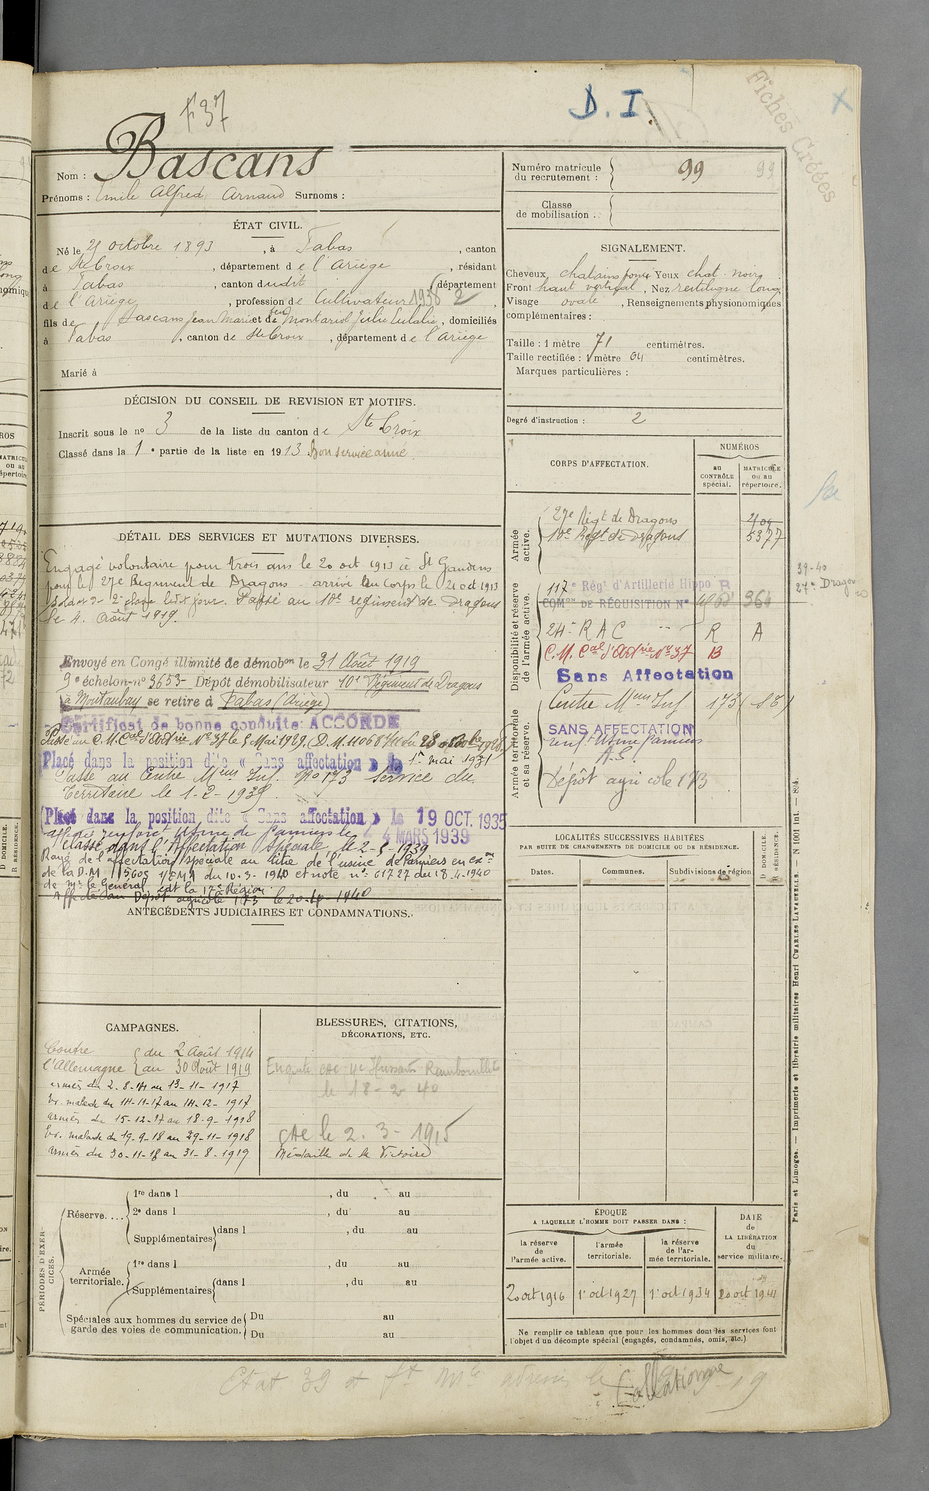 F37
D. I.
Fiches Créées
Nom : Bascans
Prénoms : Emile Alfred Arnaud Surnoms :
ÉTAT CIVIL.
Né le 21 octobre 1893, à Fabas, canton
de Ste Croix, département de l'Ariège, résidant
à Fabas, canton dudit, département
de l'Ariège, profession de Cultivateur 1936 2,
fils de Bascans Jean Marie et de feu Montariol Julie Eulalie, domiciliés
à Fabas, canton de Ste Croix, département de l'Ariège
Marié à
DÉCISION DU CONSEIL DE REVISION ET MOTIFS.
Inscrit sous le no 3 de la liste du canton de Ste Croix
Classé dans la 1e partie de la liste en 1913 Bon service armé.
DÉTAIL DES SERVICES ET MUTATIONS DIVERSES.
Engagé volontaire pour trois ans le 20 oct 1913 à St Gaudens
pour le 27e Régiment de Dragons arrivé au corps le 21 oct 1913
Soldat de 2e classe ledit jour. Passé au 10e régiment de Dragons
le 4 août 1919.
Envoyé en Congé illimité de démobon le 31 Août 1919
9e échelon-no 3653- Dépôt démobilisateur 10e Régiment de Dragons
à Montauban se retire à Fabas (Ariège)
Certificat de bonne conduite ACCORDÉ
Passé au C. M. Cal d'Artrie No 37 le 5 Mai 1929. (D. M. 11068 du 28 1928
Placé dans la position dite « Sans affectation » le 1er mai 1931
Passe au Centre Meur Inf. No 173 Service du
Territoire le 1-2-1939.
Placé dans la position dite « Sans affectation » Le 19 OCT. 1935
Aff. de renfort Usine de Pamiers le 4 MARS 1939
Classé dans l'Affectation Spéciale le 2-9-1939
Rayé de l'affectation spéciale au titre de l'usine de Pamiers en exon
de la D.M. 15605 1/EMA du 10-3-1940 et note n° 61727 du 18.4.1940
de Mr le Général, cdt la 17e Région.
Affecté au Dépôt agricole 173 le 20-4-1940
ANTÉCÉDENTS JUDICIAIRES ET CONDAMNATIONS.
CAMPAGNES.
Contre { du 2 Août 1914
l'Allemagne { au 30 Août 1919
armées du 2.8.14 au 13-11-1917
Ev. malade du 14-11-17 au 14-12-1917
armées du 15-12-17 au 18-9-1918
Ev. malade du 19-9-18 au 29-11-1918
armées du 30-11-18 au 31-8-1919
BLESSURES, CITATIONS,
DÉCORATIONS, ETC.
Enquête CAC 4e Hussards Rambouillet
le 18-2-40
CAC le 2-3-1915
Médaille de la Victoire
PÉRIODES D'EXERCICES.
Réserve....
1re dans l , du au
2e dans l , du au
Supplémentaires dans l , du au
Armée territoriale.
1re dans l , du au
Supplémentaires dans l , du au
Spéciales aux hommes du service de garde des voies de communication.
Du au
Du au
Numéro matricule du recrutement : 99 99
Classe de mobilisation :
SIGNALEMENT.
Cheveux chatains foncé Yeux chat. noirs
Front haut vertical, Nez rectiligne long
Visage ovale, Renseignements physionomiques
complémentaires :
Taille : 1 mètre 71 centimètres.
Taille rectifiée : 1 mètre centimètres.
Marques particulières :
Degré d'instruction : 2
CORPS D'AFFECTATION.
NUMÉROS
au CONTRÔLE spécial.
MATRICULE ou au répertoire.
Armée active.
27e Régt de Dragons 409
10e Régt de Dragons 5377
Disponibilité et réserve de l'armée active.
117e Rég' d'Artillerie Hippo R
COMon DE RÉQUISITION N° 364
24e R A C R A
C. M. Cal d'Artrie No 37 B
Sans Affectation
Armée territoriale et sa réserve.
Centre Meur Inf 173
SANS AFFECTATION
renf. Usine Pamiers
A.S.
Dépôt agricole 173
39-40
27e Dragons
LOCALITÉS SUCCESSIVES HABITÉES
PAR SUITE DE CHANGEMENTS DE DOMICILE OU DE RÉSIDENCE.
Dates. Communes. Subdivisions de région
D DOMICILE. R RÉSIDENCE.
ÉPOQUE
A LAQUELLE L'HOMME DOIT PASSER DANS :
la réserve de l'armée active.
l'armée territoriale.
la réserve de l'armée territoriale.
DATE de LA LIBÉRATION du service militaire.
20 oct 1916 1er oct 1927 1er oct 1934 20 oct 1941
Ne remplir ce tableau que pour les hommes dont les services font
l'objet d'un décompte spécial (engagés, condamnés, omis, etc.)
Paris et Limoges. — Imprimerie et librairie militaires Henri CHARLES-LAVAUZELLE. — N 1001 Int. — 804.
Collationné